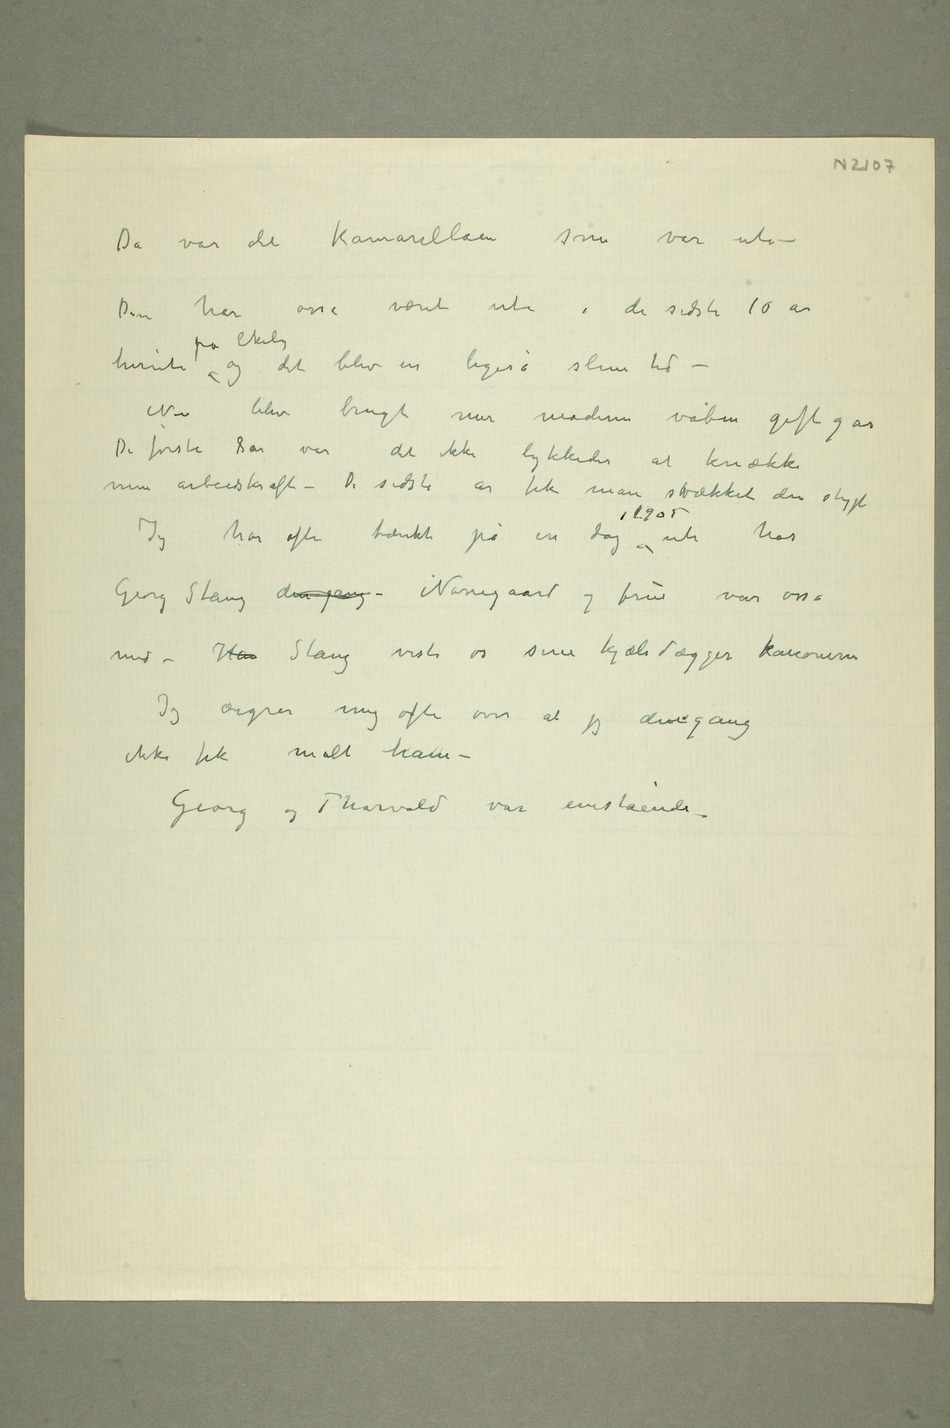 N2107
Da var det Kamarillaen som var ute–
Den har osså været ute i de sidste 10 år
herute på Ekely og det blev en ligeså slem tid –
Nu blev brugt mer moderne våben giftgas
De første år var det ikke lykkedes at knække
min arbeidskraft – De sidste år fik man svækket den stygt
Jeg har ofte tænkt på en dag i 1905 ute hos
Georg Stang den gang – Nørregaard og frue var osså
med – Han Stang viste os sine kjæledægger kanonerne
Jeg ærgrer mig ofte over at jeg dengang
ikke fik malt ham –
Georg og Tharvald var enestående –